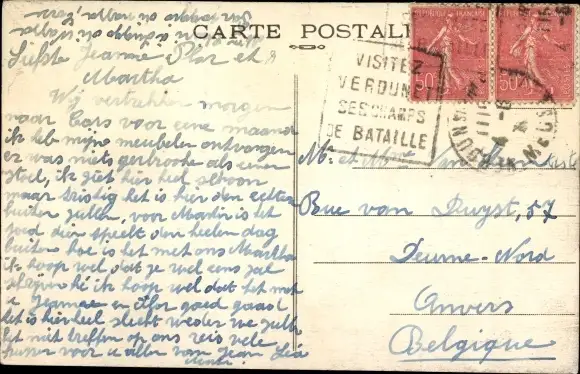 CARTE POSTALE
REPUBLIQUE FRANÇAISE
50
VISITEZ
VERDUN ET
SES CHAMPS
DE BATAILLE
VERDUN
MEUSE
Liefste Jeanne Flor et
Martha
Wij vertrekken morgen
naar voor eene maand
ik heb mijne meubelen ontvangen
er was niets gebroken als eenen
stoel, ik ziet hier heel schoon
maar triestig het is hier den echten
buiten zulle, voor Martin is het
goed die speelt den heelen dag
buiten hoe is het met ons Martha
ik hoop wel dat je wel eens zal
hé ik hoop wel dat het met
u Jeanne en Flor goed gaat
het is hier heel slecht weder we zulle
het niet treffen op ons reis vele
kussen voor u allen van Jean Léa
M. et Mme Van
Rue van Duyst, 57
Deurne-Nord
Anvers
Belgique